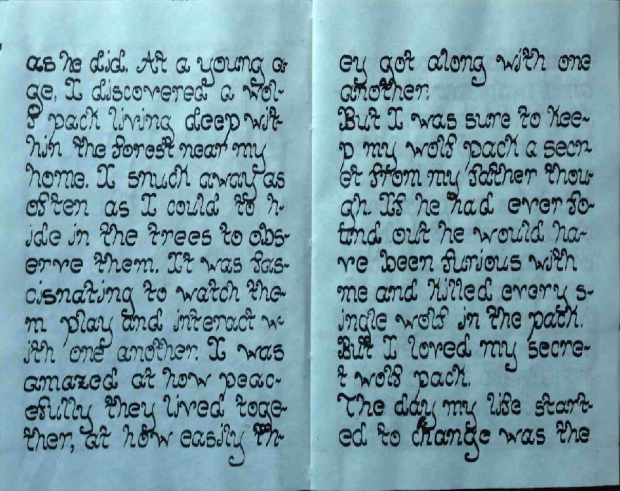 as he did. At a young a-
ge, I discovered a wol-
f pack living deep wit-
hin the forest near my
home. I snuck away as
often as I could to h-
ide in the trees to obs-
erve them. It was fas-
cisnating to watch the-
m play and interact w-
ith one another. I was
amazed at how peac-
efully they lived toge-
ther, at how easily th-
ey got along with one
another.
But I was sure to kee-
p my wolf pack a secr-
et from my father thou-
gh. If he had ever fo-
und out he would ha-
ve been furious with
me and killed every s-
ingle wolf in the pack.
But I loved my secre-
t wolf pack.
The day my life start-
ed to change was the